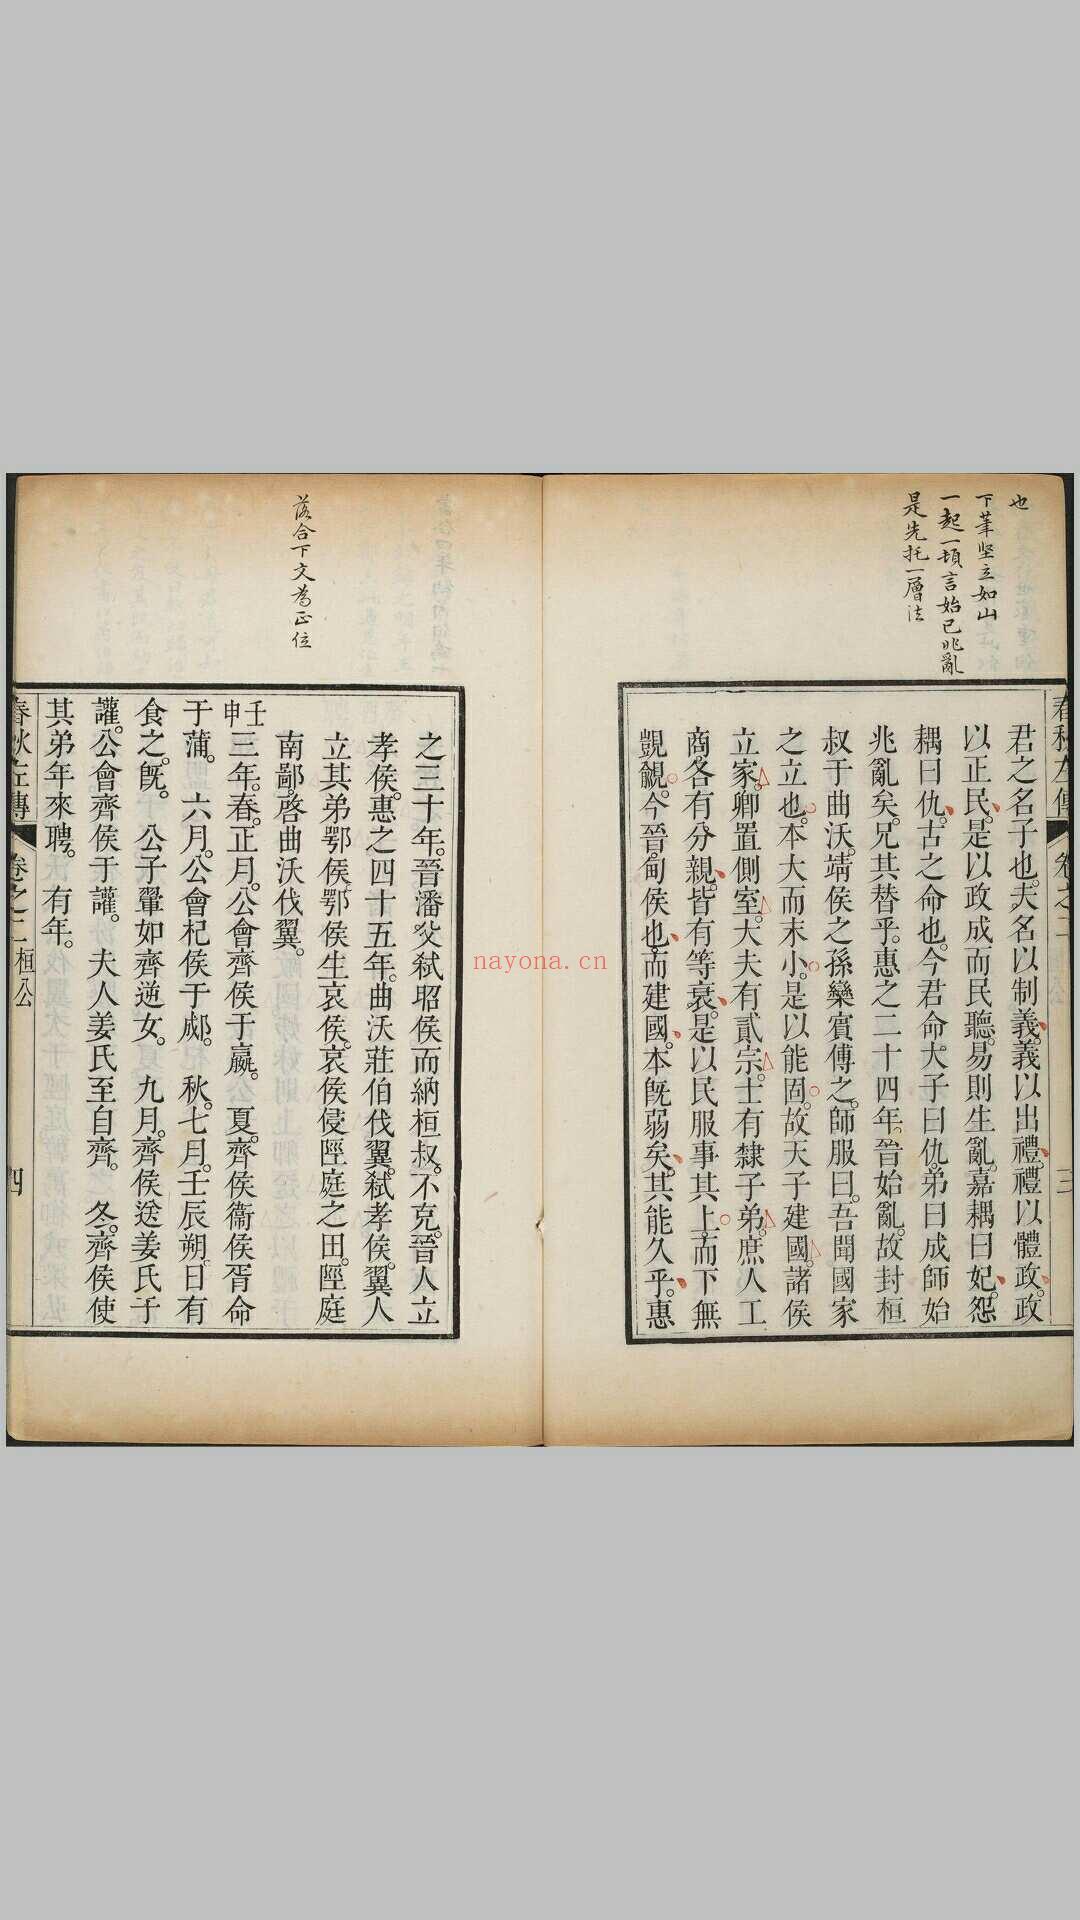 也
下筆堅立如山
一起一頓言始已兆亂
是先托一層法
春秋左傳 卷之二 三
君之名子也。夫名以制義。義以出禮。禮以體政。政
以正民。是以政成而民聽。易則生亂。嘉耦曰妃。怨
耦曰仇。古之命也。今君命大子曰仇。弟曰成師。始
兆亂矣。兄其替乎。惠之二十四年。晉始亂。故封桓
叔于曲沃。靖侯之孫欒賓傅之。師服曰。吾聞國家
之立也。本大而末小。是以能固。故天子建國。諸侯
立家。卿置側室。大夫有貳宗。士有隸子弟。庶人工
商。各有分親。皆有等衰。是以民服事其上。而下無
覬覦。今晉。甸侯也。而建國。本既弱矣。其能久乎。惠
落合下文為正位
之三十年。晉潘父弒昭侯而納桓叔。不克。晉人立
孝侯。惠之四十五年。曲沃莊伯伐翼。弒孝侯。翼人
立其弟鄂侯。鄂侯生哀侯。哀侯侵陘庭之田。陘庭
南鄙。啓曲沃伐翼。
壬申三年。春。正月。公會齊侯于嬴。 夏。齊侯衞侯胥命
于蒲。 六月。公會杞侯于郕。 秋。七月。壬辰朔。日有
食之。既。 公子翬如齊逆女。 九月。齊侯送姜氏于
讙。公會齊侯于讙。 夫人姜氏至自齊。 冬。齊侯使
其弟年來聘。 有年。
春秋左傳 卷之二 桓公 四
nayona.cn